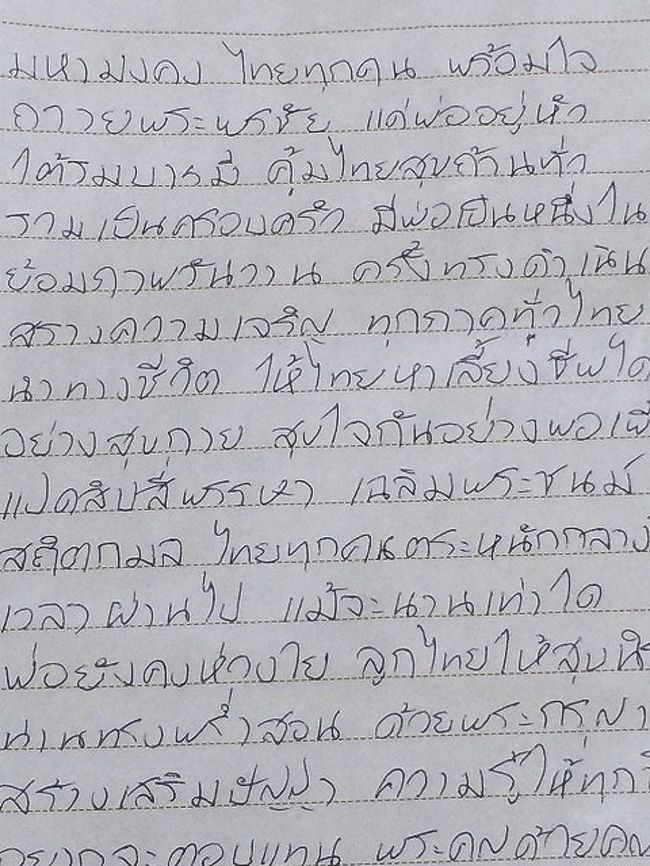 มหามงคง ไทยทุกคน พร้อมใจ
ถวายพระพรชัย แด่พ่ออยู่หัว
ใต้ร่มบารมี คุ้มไทยสุขถ้วนทั่ว
รวมเป็นครอบครัว มีพ่อเป็นหนึ่งใน
ย้อมภาพวันวาน ครั้งทรงดำเนิน
สร้างความเจริญ ทุกภาคทั่วไทย
นำทางชีวิต ให้ไทยหาเลี้ยงชีพได
อย่างสุขกาย สุขใจกันอย่างพอเพี
แปดสิบสี่พรรษา เฉลิมพระชนม์
สถิตกมล ไทยทุกคนตระหนักกลาง
เวลาผ่านไป แม้จะนานเท่าใด
พ่อยังคงห่วงใย ลูกไทยให้สุข
ท่านทรงพร่ำสอน ด้วยพระกรุณา
สร้างเสริมปัญญา ความรู้ให้ทุก
อยากจะตอบแทน พระคุณด้วยคุณ